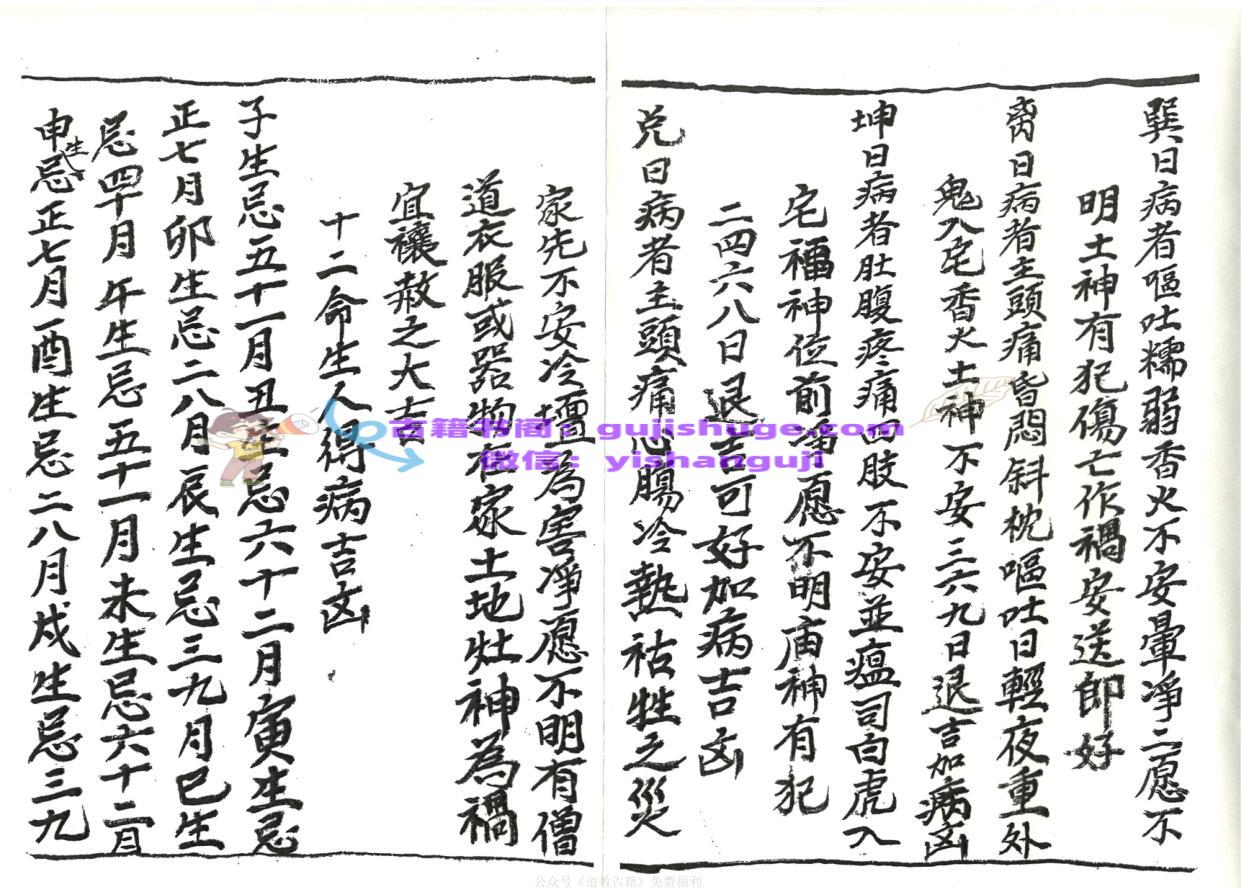 巽日病者嘔吐糯弱香火不安暈淨二愿不
明土神有犯傷亡作禍安送即好
离日病者主頭痛昏悶斜枕嘔吐日輕夜重外
鬼入宅香火土神不安三六九日退吉加病凶
坤日病者肚腹疼痛四肢不安並瘟司白虎入
宅福神位前净愿不明庙神有犯
二四六八日退吉可好加病吉凶
兑日病者主頭痛心腸冷熱祜牲之災
家先不安冷壇為害淨愿不明有僧
道衣服或器物在家土地灶神為禍
宜禳赦之大吉
十二命生人得病吉凶
子生忌五十一月丑生忌六十二月寅生忌
正七月卯生忌二八月辰生忌三九月巳生
忌四十月午生忌五十一月未生忌六十二月
申生忌正七月酉生忌二八月戌生忌三九
古籍书阁：gujishuge.com
微信：yishanguji
公众号《道教古籍》免费福利